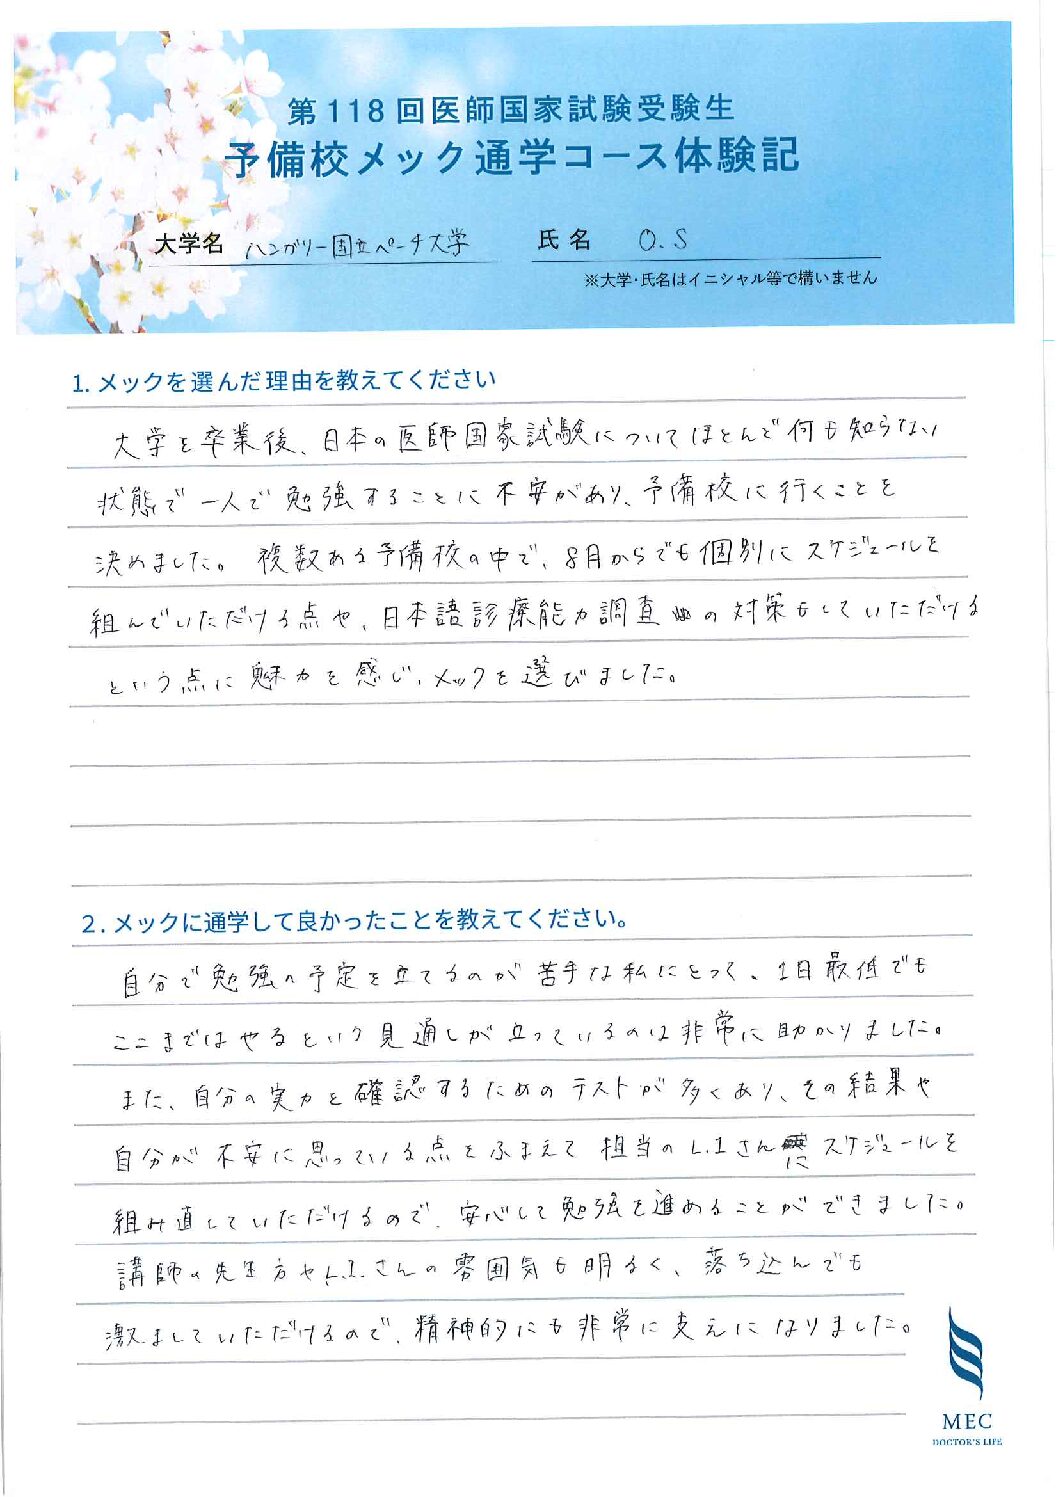 第118回医師国家試験受験生
予備校メック通学コース体験記
大学名 ハンガリー国立ペーチ大学 氏名 O.S
※大学・氏名はイニシャル等で構いません
1. メックを選んだ理由を教えてください
大学を卒業後、日本の医師国家試験についてほとんど何も知らない
状態で一人で勉強することに不安があり、予備校に行くことを
決めました。複数ある予備校の中で、8月からでも個別にスケジュールを
組んでいただける点や、日本語診療能力調査の対策もしていただける
という点に魅力を感じ、メックを選びました。
2. メックに通学して良かったことを教えてください。
自分で勉強の予定を立てるのが苦手な私にとって、1日最低でも
ここまではやるという見通しが立っているのは非常に助かりました。
また、自分の実力を確認するためのテストが多くあり、その結果や
自分が不安に思っている点をふまえて担当のL.Iさんにスケジュールを
組み直していただけるので、安心して勉強を進めることができました。
講師の先生方やL.I.さんの雰囲気も明るく、落ち込んでも
激ましていただけるので、精神的にも非常に支えになりました。
MEC
DOCTOR'S LIFE